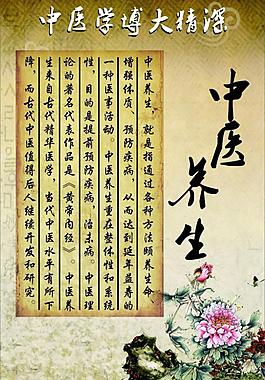 中医学博大精深
中医养生
中医养生，就是指通过各种方法颐养生命
增强体质、预防疾病，从而达到延年益寿的
一种医事活动。中医养生重在整体性和系统
性，目的是提前预防疾病，治未病。中医理
论的著名代表作品是《黄帝内经》。中医养
生来自古代精华医学，当代中医水平有所下
降，而古代中医值得后人继续开发和研究。